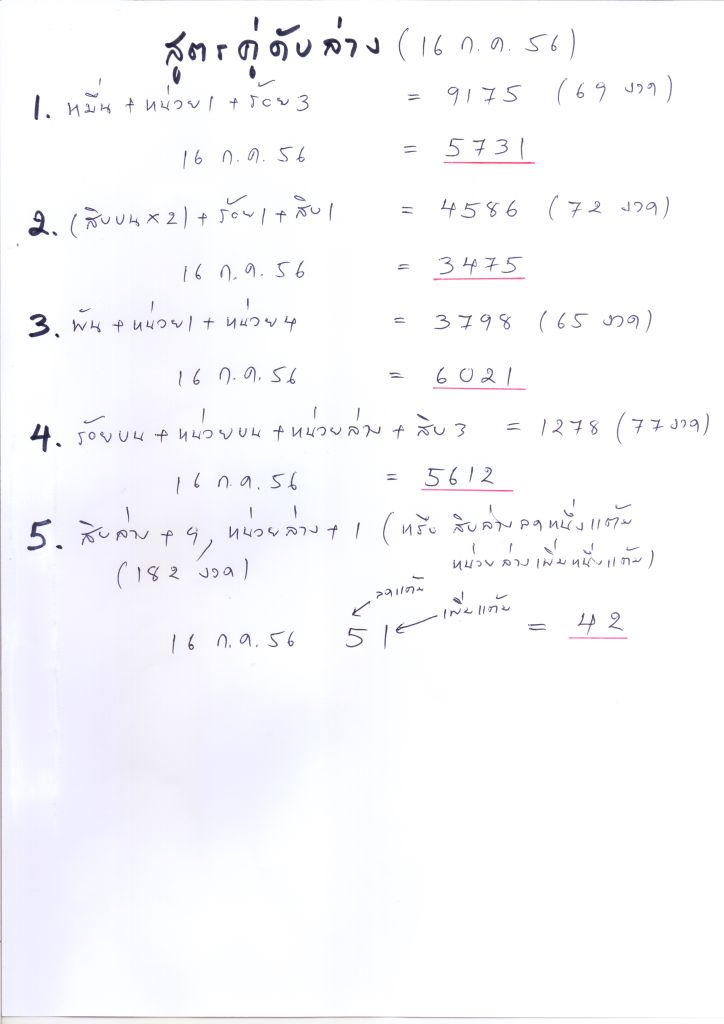 สูตรคู่ดับล่าง (16 ก.ค. 56)
1. หมื่น + หน่วย1 + ร้อย3 = 9175 (69 งวด)
16 ก.ค. 56 = 5731
2. (สิบบน×2) + ร้อย1 + สิบ1 = 4586 (72 งวด)
16 ก.ค. 56 = 3475
3. พัน + หน่วย1 + หน่วย4 = 3798 (65 งวด)
16 ก.ค. 56 = 6021
4. ร้อยบน + หน่วยบน + หน่วยล่าง + สิบ3 = 1278 (77 งวด)
16 ก.ค. 56 = 5612
5. สิบล่าง + 9, หน่วยล่าง + 1 (หรือ สิบล่างลดหนึ่งแต้ม
(182 งวด) หน่วยล่างเพิ่มหนึ่งแต้ม)
ลดแต้ม
เพิ่มแต้ม
16 ก.ค. 56 51 = 42